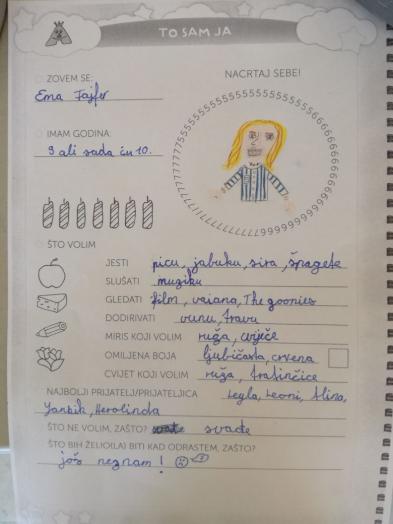 TO SAM JA
ZOVEM SE:
Ema Fajfer
NACRTAJ SEBE!
555555555555555555555555666666666666666666
77777777777777777777777777999999999999999
IMAM GODINA:
9 ali sada ću 10.
ŠTO VOLIM
JESTI picu, jabuku, sira, špagete
SLUŠATI muziku
GLEDATI film, vaiana, The goonies
DODIRIVATI vunu, travu
MIRIS KOJI VOLIM ruža, cvječe
OMILJENA BOJA ljubičasta, crvena
CVIJET KOJI VOLIM ruža, tratinčice
NAJBOLJI PRIJATELJ/PRIJATELJICA Leyla, Leoni,
Herolinda
ŠTO NE VOLIM, ZAŠTO? svađe
ŠTO BIH ŽELIO(LA) BITI KAD ODRASTEM, ZAŠTO?
još neznam!